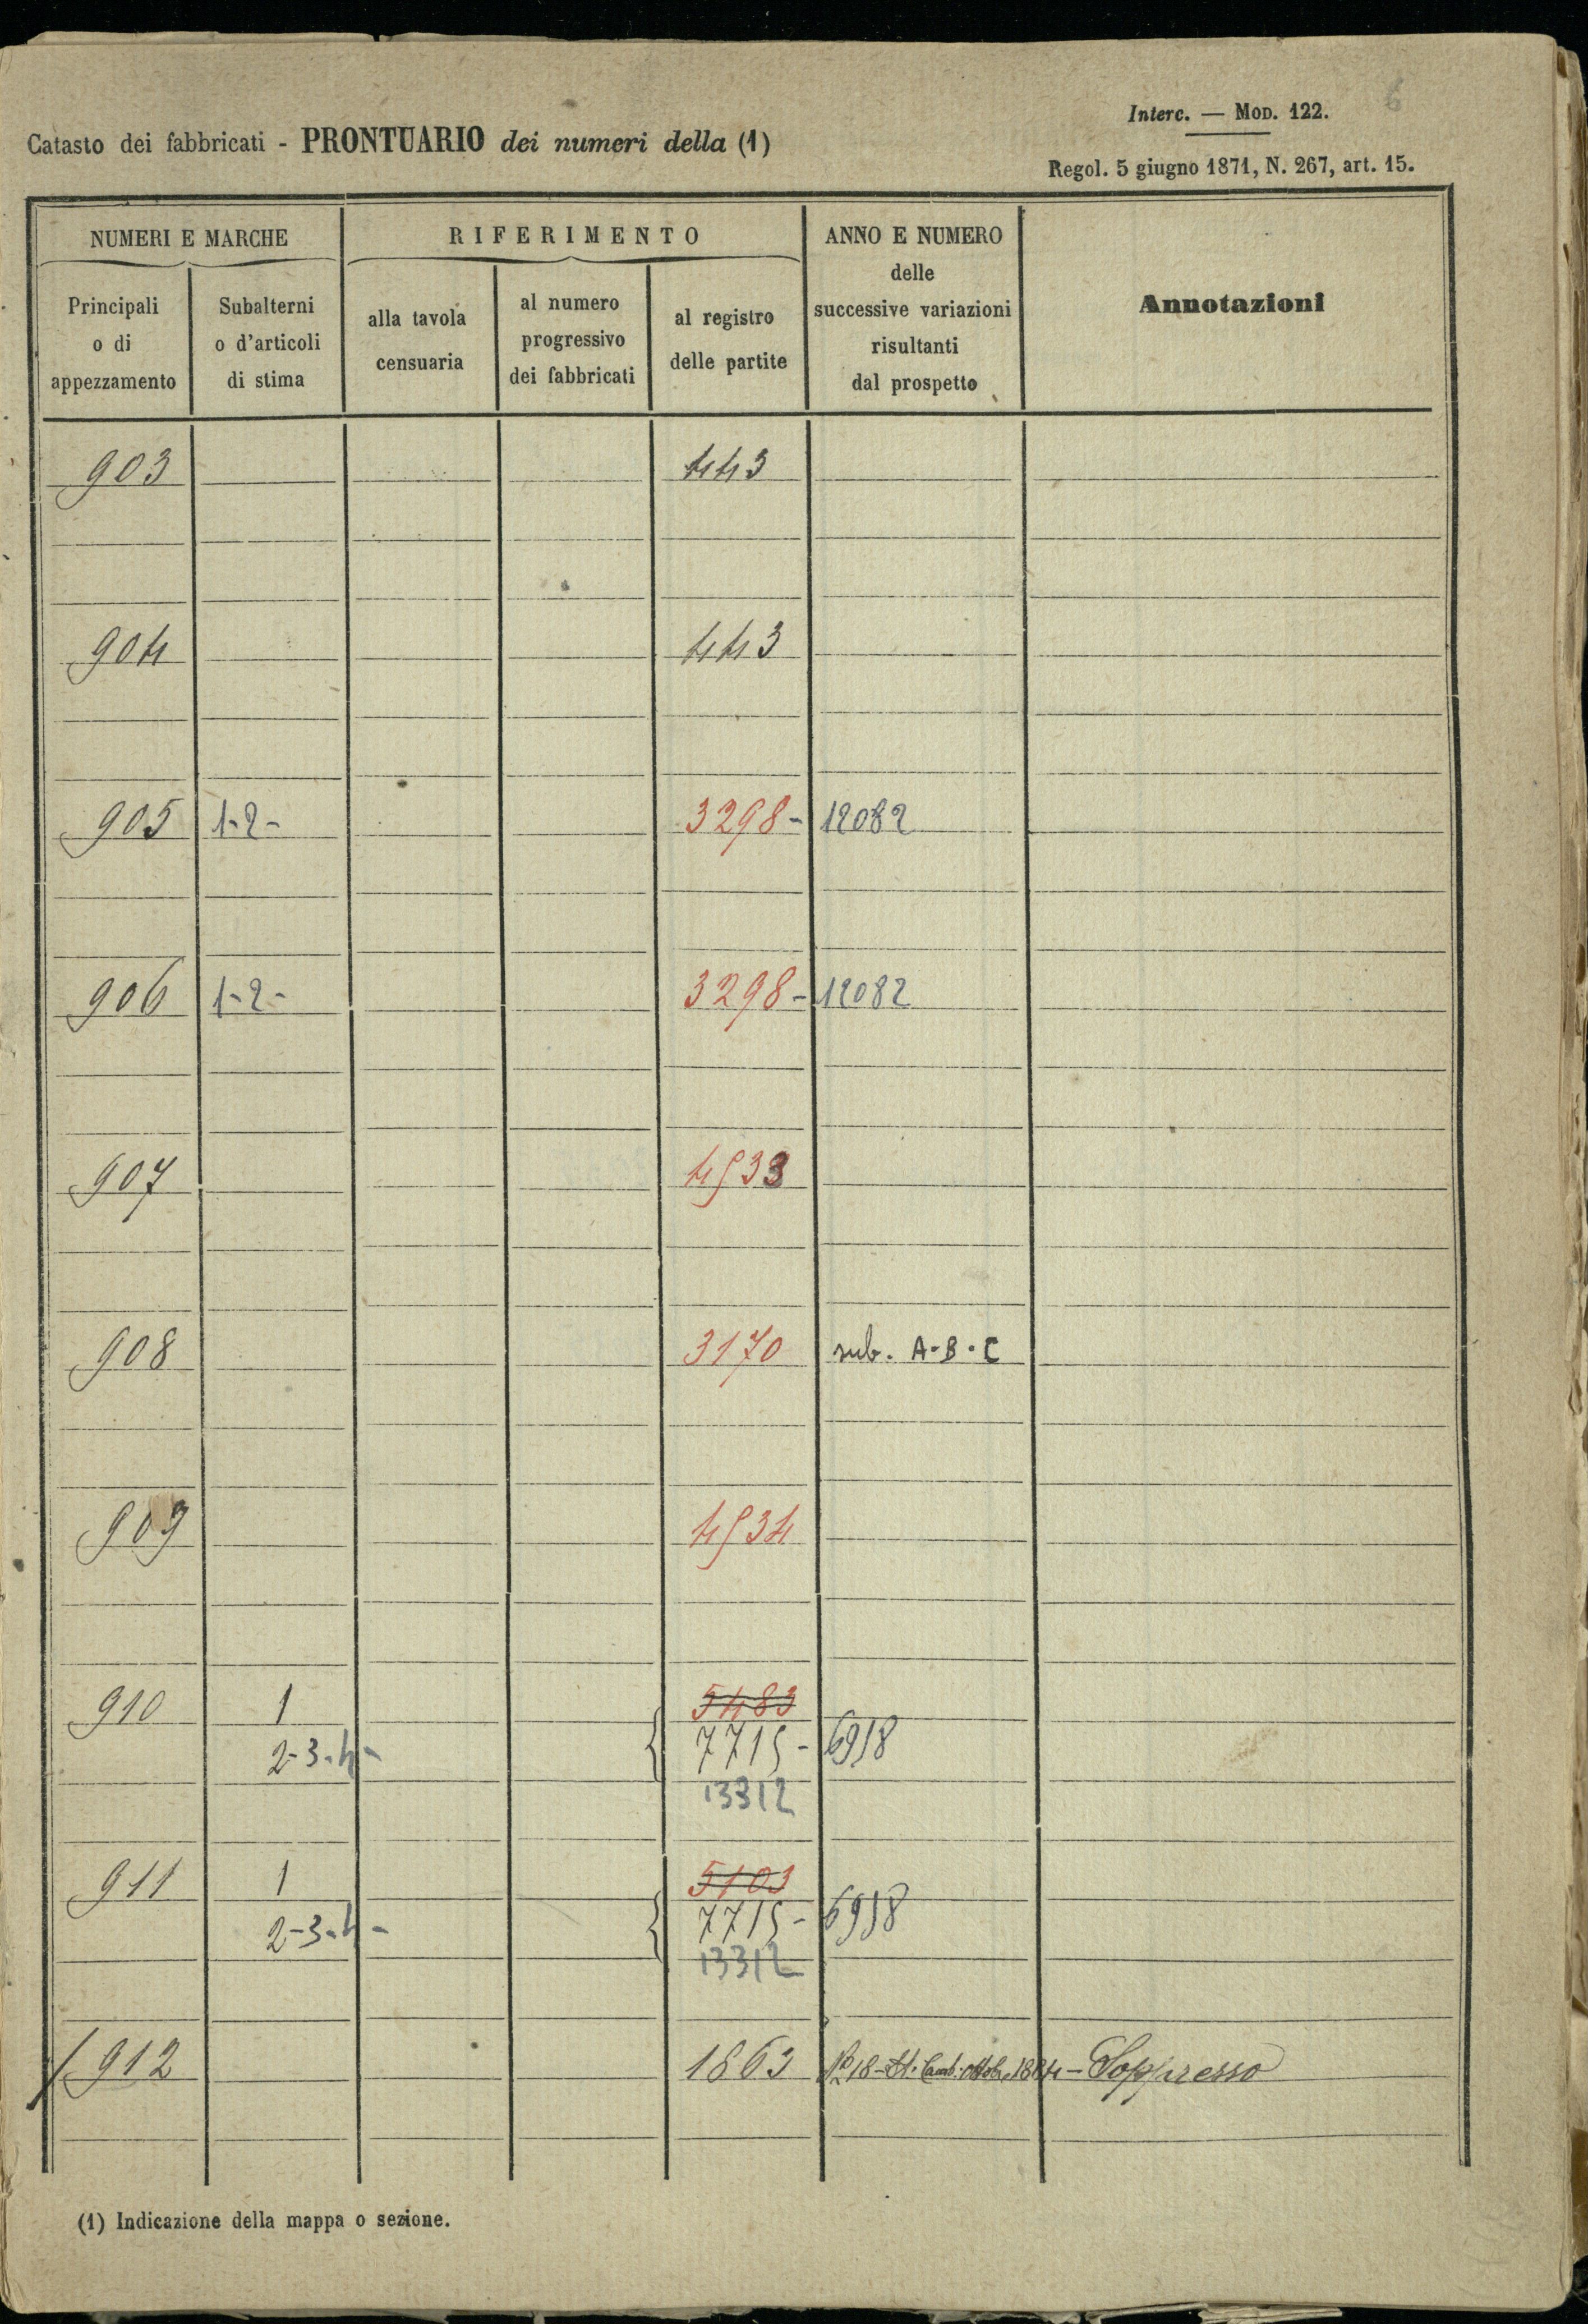 6
Interc. — MOD. 122.
Catasto dei fabbricati - PRONTUARIO dei numeri della (1)
Regol. 5 giugno 1871, N. 267, art. 15.
NUMERI E MARCHE
RIFERIMENTO
ANNO E NUMERO
delle
successive variazioni
risultanti
dal prospetto
Annotazioni
Principali
o di
appezzamento
Subalterni
o d'articoli
di stima
alla tavola
censuaria
al numero
progressivo
dei fabbricati
al registro
delle partite
903 443
904 443
905 1-2- 3298- 12082
906 1-2- 3298- 12082
907 4533
908 3170 sub. A-B-C
909 4534
910 1 5483
2-3-4- 7715- 6918
13312
911 1 5103
2-3-4- 7715- 6918
13312
912 1863 No 18 - St. Camb. Ottobre 1884 - Soppresso
(1) Indicazione della mappa o sezione.